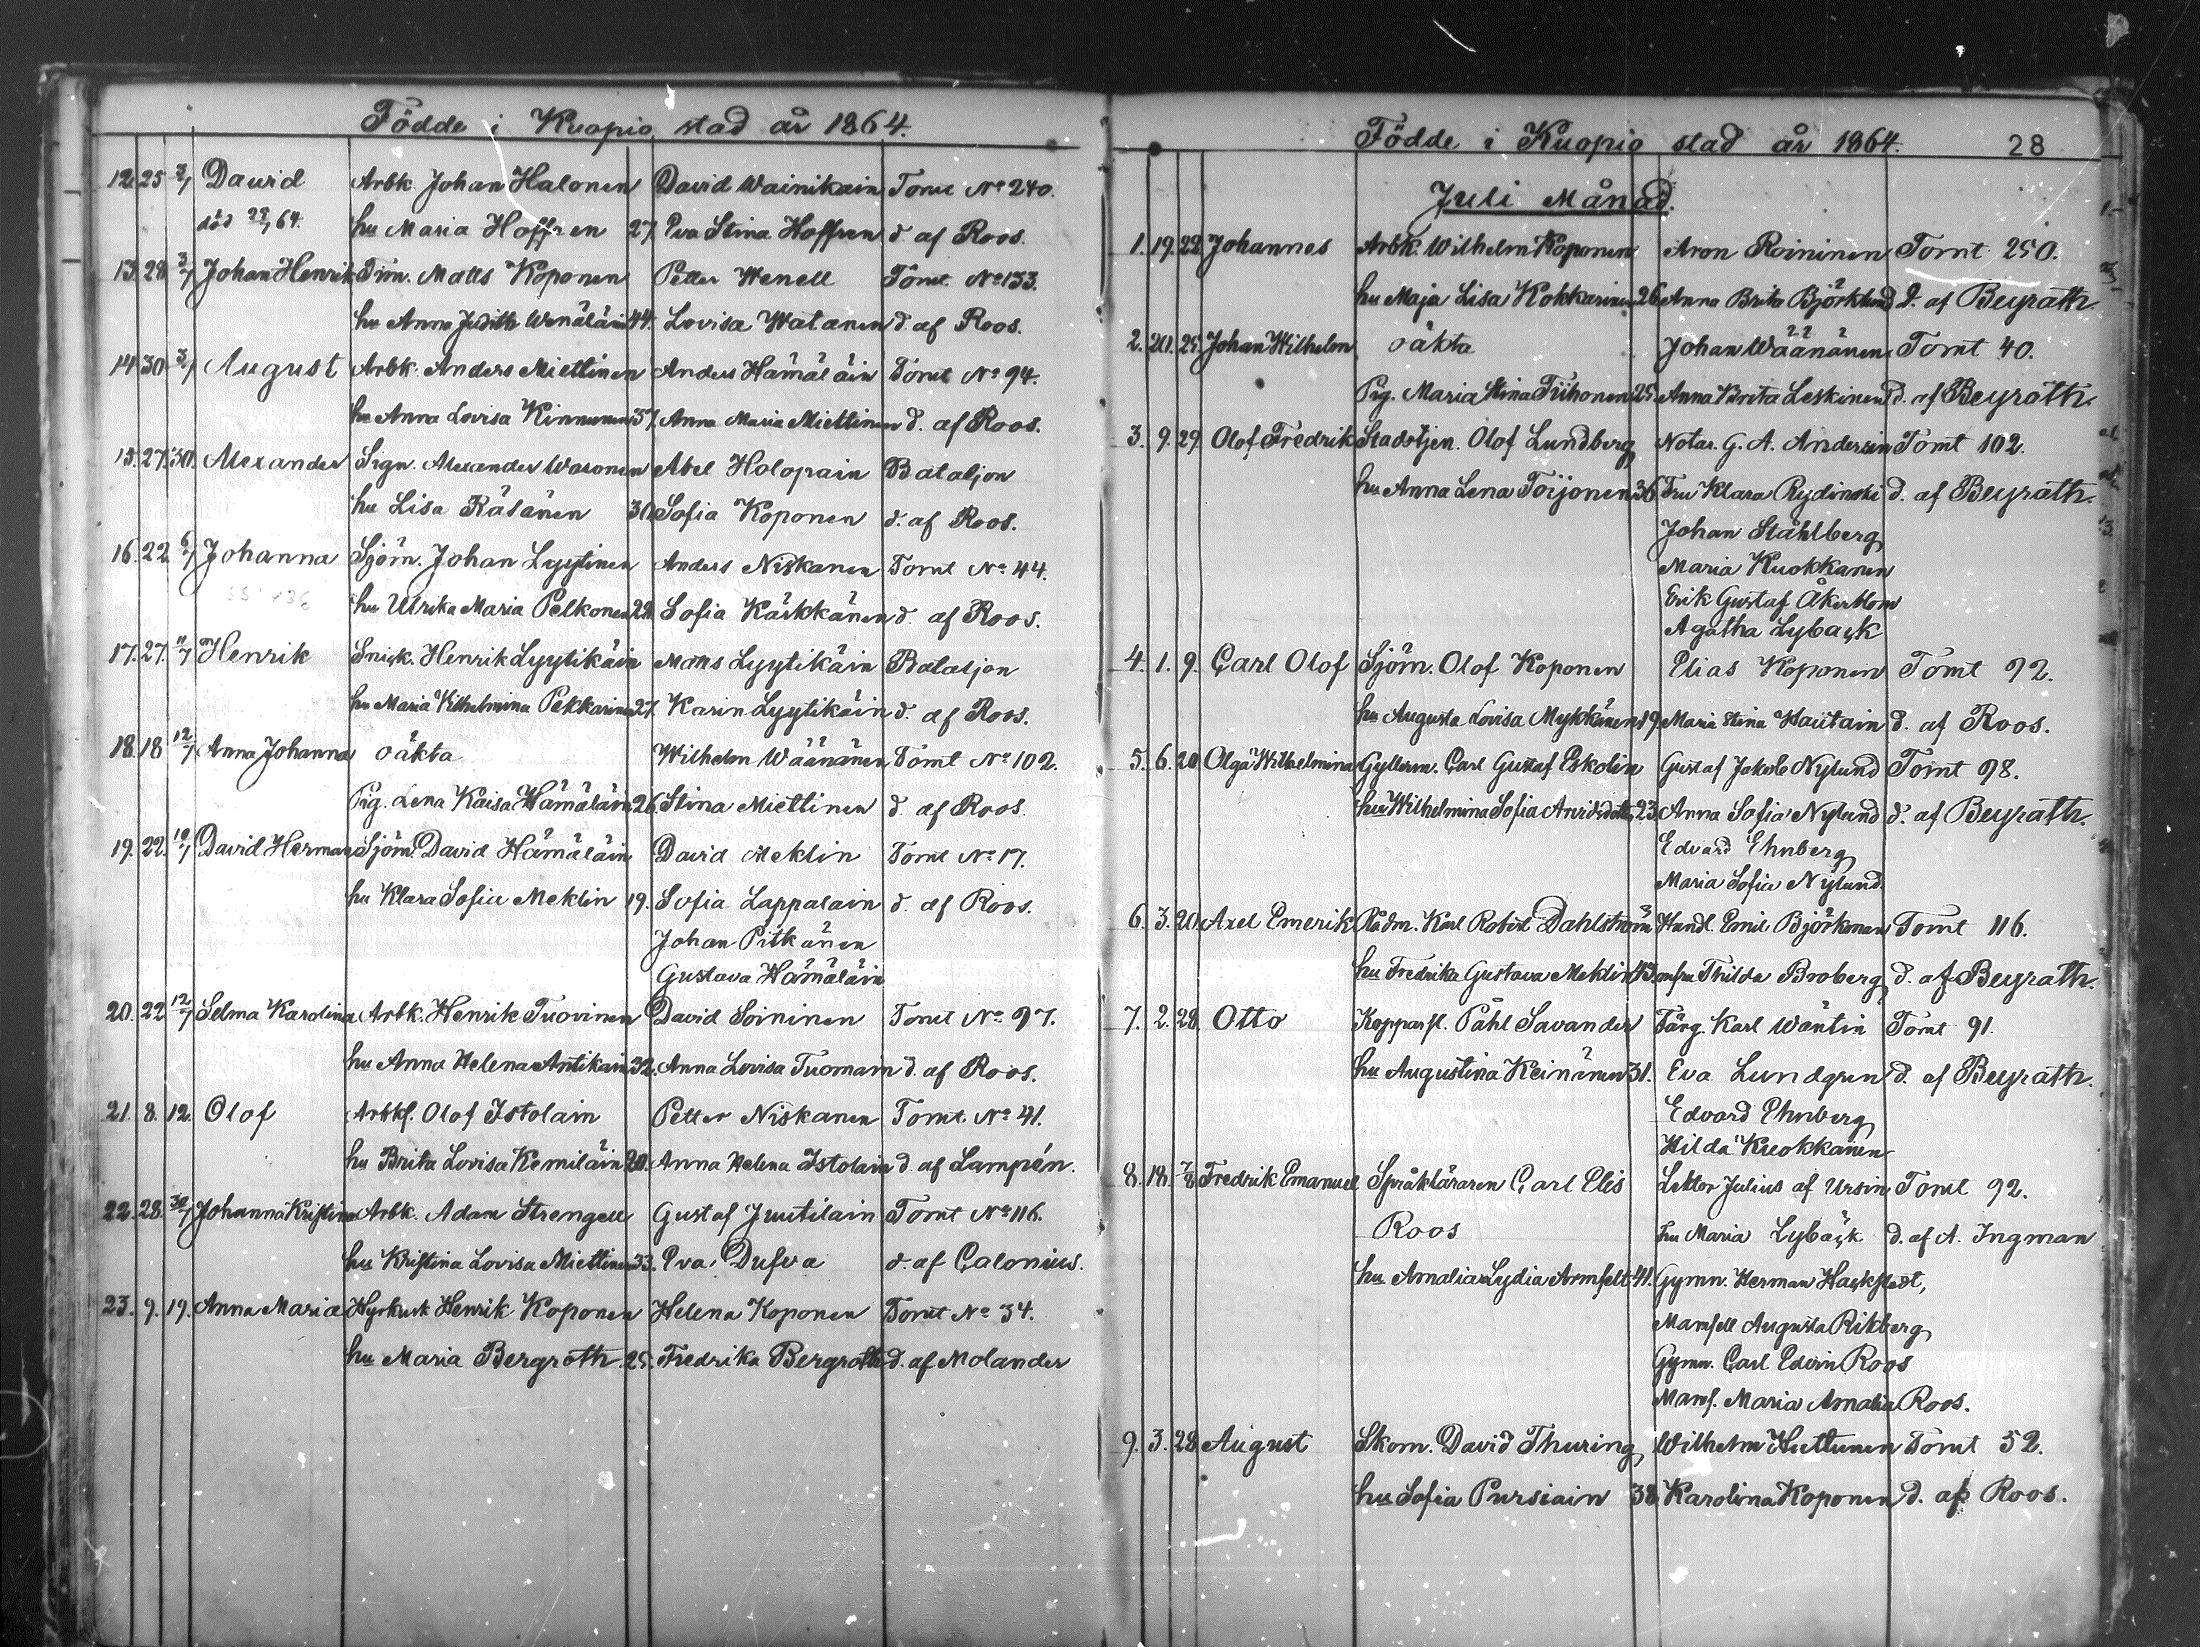 Födde i Kuopio stad år 1864.
12. 25 2/7 David Arbk. Johan Halonen David Wainikain Tomt No 240.
död 29/7 64. hu Maria Hoffren 27. Eva Stina Hoffren d. af Roos.
13. 28. 3/7 Johan Henrik Tim. Matts Koponen Petter Wenell Tomt No 133.
hu Anna Judith Wänäläin 44. Lovisa Watanen d. af Roos.
14 30 3/7 August Arbk. Anders Miettinen Anders Hämäläin Tomt No 94.
hu Anna Lovisa Kinnunen 37. Anna Maria Miettinen d. af Roos.
15. 27. 30. Alexander Sign. Alexander Wasonen Abel Holopain Bataljon
hu Lisa Räsänen 30. Sofia Koponen d. af Roos.
16. 22 6/7 Johanna Sjöm. Johan Lyytinen Anders Niskanen Tomt No 44.
hu Ulrika Maria Pelkonen 22. Sofia Kärkkänen d. af Roos.
17. 27. 11/7 Henrik Snick. Henrik Lyytikäin Matts Lyytikäin Bataljon
hu Maria Vilhelmina Pekkarinen 27. Karin Lyytikäin d. af Roos.
18. 18 12/7 Anna Johanna oäkta Wilhelm Wäänänen Tomt No 102.
Pig. Lena Kaisa Hämäläin 26. Stina Miettinen d. af Roos.
19. 22. 10/7 David Herman Sjöm. David Hämäläin David Meklin Tomt No 17.
hu Klara Sofia Meklin 19. Sofia Lappalain d. af Roos.
Johan Pitkänen
Gustava Hämäläin
20. 22 12/7 Selma Karolina Arbk. Henrik Tuovinen David Soininen Tomt No 97.
hu Anna Helena Antikain 32. Anna Lovisa Tuomain d. af Roos.
21. 8. 12. Olof Arbkf. Olof Istolain Petter Niskanen Tomt No 41.
hu Brita Lovisa Kemiläin 20. Anna Helena Istolain d. af Lampén.
22. 28. 30/7 Johanna Kristina Arbk. Adam Strengell Gustaf Juutilain Tomt No 116.
hu Kristina Lovisa Miettinen 33. Eva Dufva d. af Calonius.
23. 9. 19. Anna Maria Hyrkusk Henrik Koponen Helena Koponen Tomt No 34.
hu Maria Bergroth 25. Fredrika Bergroth d. af Molander
Födde i Kuopio stad år 1864. 28
Juli Månad.
1. 19. 22. Johannes Arbk. Wilhelm Koponen Aron Roininen Tomt 250.
hu Maja Lisa Kokkarinen 26. Anna Brita Björklund d. af Beyrath.
2. 20. 25. Johan Wilhelm oäkta Johan Wäänänen Tomt 40.
Pig. Maria Stina Tiihonen 25. Anna Brita Leskinen d. af Beyrath.
3. 9. 29. Olof Fredrik Stadstjen. Olof Lundberg Notar. G. A. Andersin Tomt 102.
hu Anna Lena Toijonen 36. Fru Klara Rydinski d. af Beyrath.
Johan Ståhlberg
Maria Kuokkanen
Erik Gustaf Åkerblom
Agatha Lyback
4. 1. 9. Carl Olof Sjöm. Olof Koponen Elias Koponen Tomt 92.
hu Augusta Lovisa Mykkänen 19. Maria Stina Hautain d. af Roos.
5. 6. 20 Olga Wilhelmina Gyllerm. Carl Gustaf Eskolin Gustaf Jakob Nylund Tomt 98.
hu Wilhelmina Sofia 23. Anna Sofia Nylund d. af Beyrath.
Edvard Ehnberg
Maria Sofia Nylund.
6. 3. 20. Axel Emerik Rådm. Karl Robert Dahlström Handl. Emil Björkman Tomt 116.
hu Fredrika Gustava Meklin Thilda Broberg d. af Beyrath.
7. 2. 28. Otto Kopparsl. Påhl Savander Färg. Karl Wäntin Tomt 91.
hu Augustina Keinänen 31. Eva Lundgren d. af Beyrath.
Edvard Ehnberg
Hilda Kuokkanen
8. 18. 7/8 Fredrik Emanuel Språkläraren Carl Elis Lektor Julius af Ursin Tomt 92.
Roos fru Maria Lybäck d. af A. Ingman
hu Amalia Lydia Armfelt 41. Gymn. Herman Hackstedt,
Mamsell Augusta Rikberg
Gymn. Carl Edvin Roos
Mams. Maria Amalia Roos.
9. 3. 28. August Skom. David Thuring Wilhelm Huttunen Tomt 52.
hu Sofia Pursiain 38. Karolina Koponen d. af Roos.